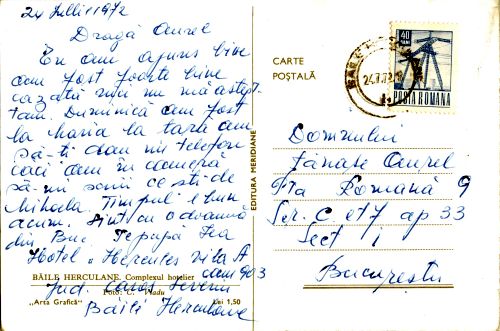 24 Iulie 1972
Dragă Aurel
Eu am ajuns bine
am fost foarte bine
cazată nici nu mă aștept
tam. Duminică am fost
la Maria la țară am
să-ți dau un telefon
căci am în cameră
să-mi scrii ce știi de
Mihaela Timpul e bun
acum. Sînt cu o doamnă
din Buc. Te pupă
Hotel „Hercules vila A
cam 903
Jud. Caraș Severin
Băile Herculane
BĂILE HERCULANE. Complexul hotelier
Foto: C. Vladu
„Arta Grafică"
Lei 1,50
EDITURA MERIDIANE
CARTE
POȘTALĂ
40
BANI
POSTA ROMANA
BAILE
24.7.72
Domnului
Tănase Aurel
P-ța Romană 9
Scr. C et 7 ap 33
Sect 1
București